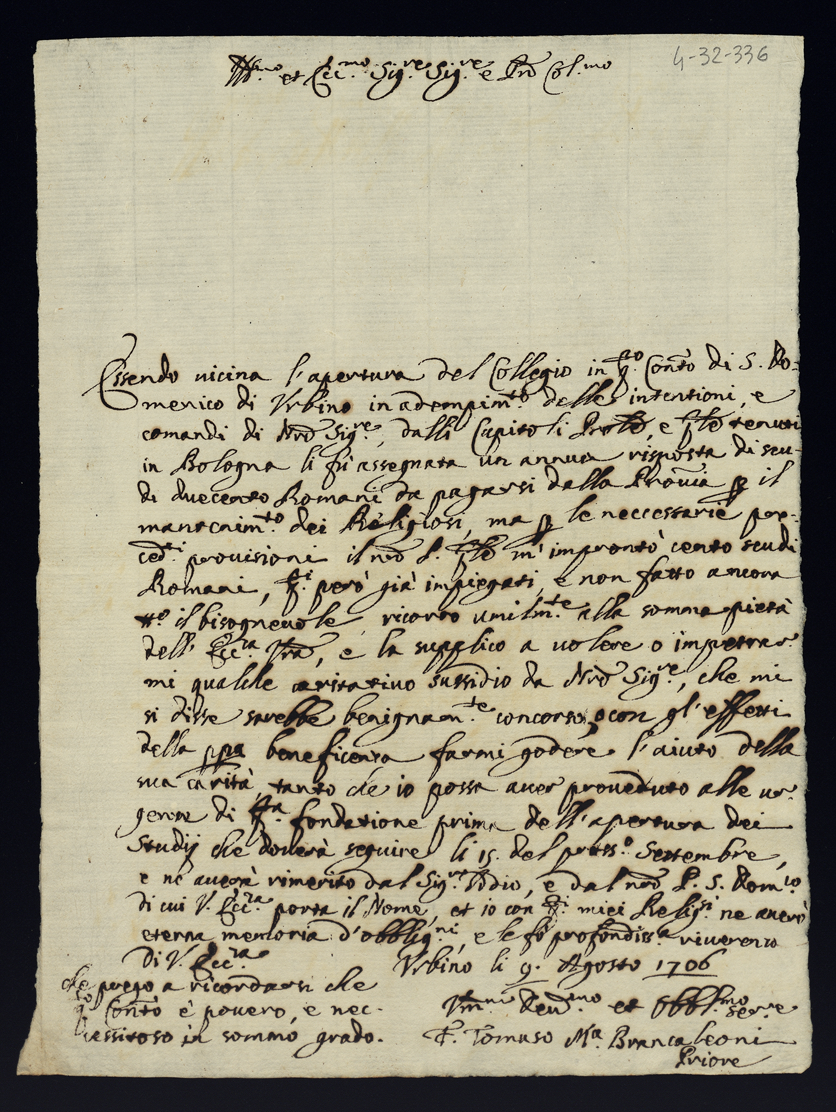 4-32-336
Ill.mo et Ecc.mo Sig.re Sig.re e Pron Col.mo
Essendo vicina l'apertura del Collegio in q.to Conto di S. Do-
menico di Urbino in adempim.to delle intentioni, e
comandi di Nro Sig.re, dalli Capitoli Prole, e tenuti
in Bologna li fù assegnata un annua risposta di scu-
di duecento Romani da pagarsi dalla Provia p il
mantenim.to dei Religiosi, ma p le neccessarie prec-
ced.ti provisioni il nro P. m'improntò cento scudi
Romani, q.i però già impiegati, e non fatto ancora
tt.o il bisognevole, ricorro umilm.te alla somma pietà
dell' Ecc.za Vra, e la supplico a volere o impetrar-
mi qualche caritativo sussidio da Nro Sig.re, che mi
si disse sarebbe benignam.te concorso, o con gl'effetti
della ppa beneficenza farmi godere l'aiuto della
sua carità, tanto che io possa aver proveduto alle ur-
genze di q.ta fondatione prima dell'apertura dei
Studij che doverà seguire li 15. del pross.o Settembre,
e ne averà rimerito dal Sig.re Iddio, e dal nro P. S. Dom.co
di cui V. Ecc.za porta il Nome, et io con q.i miei Relig.si ne averò
eterna memoria d'obblig.ni, e le fò profondiss.a riverenza
Di V. Ecc.za
Urbino li 9. Agosto 1706
che prego a ricordarsi che
q.to Conto è povero, e nec-
cessitoso in sommo grado.
Um.mo Dev.mo et Obbl.mo Ser.re
F. Tomaso M.a Brancaleoni
Priore